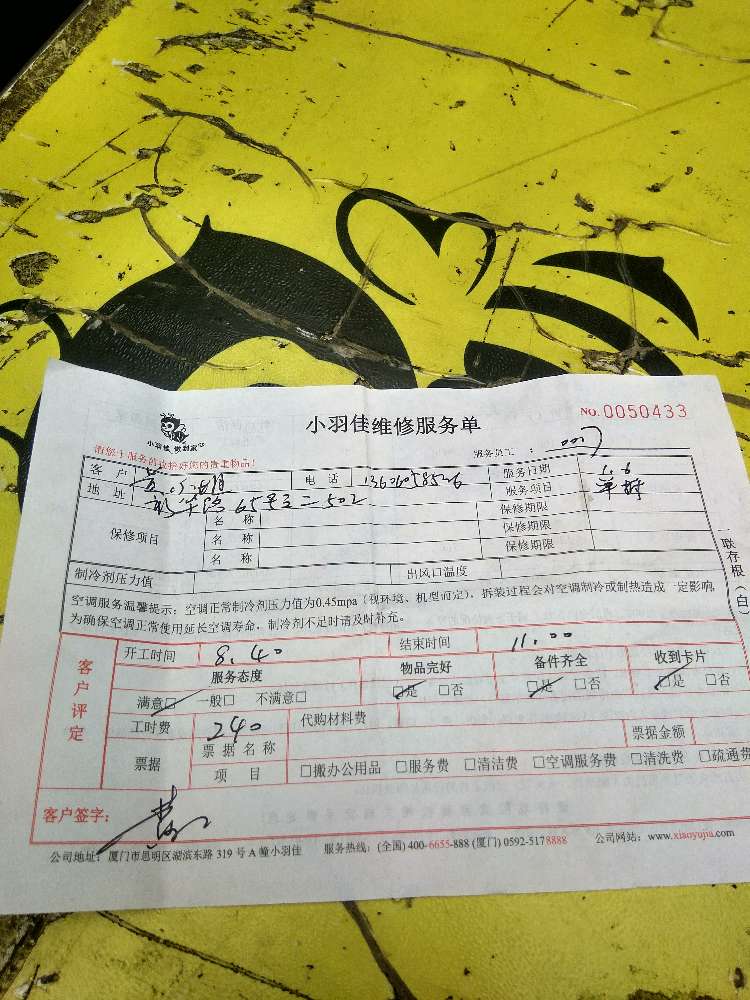 小羽佳 做到家
小羽佳维修服务单
NO.0050433
请您于服务前收拾好您的贵重物品！
服务员工：
客户 电话 13606058526 服务日期 1.6
地址 65号之二502 服务项目 单拆
保修项目 名称 保修期限
名称 保修期限
名称 保修期限
制冷剂压力值 出风口温度
空调服务温馨提示：空调正常制冷剂压力值为0.45mpa（视环境、机型而定），拆装过程会对空调制冷或制热造成一定影响
为确保空调正常使用延长空调寿命，制冷剂不足时请及时补充。
联存根（白）
客户评定
开工时间 8.40 结束时间 11.00
服务态度 物品完好 备件齐全 收到卡片
满意□ 一般□ 不满意□ □是 □否 □是 □否 □是 □否
工时费 240 代购材料费
票据 票据名称 票据金额
项目 □搬办公用品 □服务费 □清洁费 □空调服务费 □清洗费 □疏通费
客户签字：
公司地址：厦门市思明区湖滨东路 319 号 A 幢小羽佳 服务热线：(全国) 400-6655-888 (厦门) 0592-5178888 公司网站：www.xiaoyujia.com